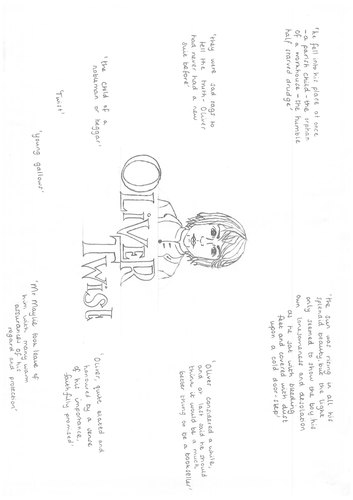 'he fell into his place at once
- a parish child - the orphan
of a workhouse - the humble
half starved drudge'
'they were sad rags to
tell the truth - Oliver
had never had a new
suit before'
'the child of a
nobleman or beggar'
'Twist'
'young gallows'
OLiVER
TWiST
'the sun was rising in all his
splendid beauty but the light
only seemed to show the boy his
own lonesomeness and desolation
as he sat with bleeding
feet and covered with dust
upon a cold door-step'
'Oliver considered a while,
and at last said he should
think it would be a much
better thing to be a bookseller'
'Oliver, quite elated and
honoured by a sense
of his importance,
faithfully promised'
'Mr Maylie took leave of
him with many warm
assurances of his
regard and protection'